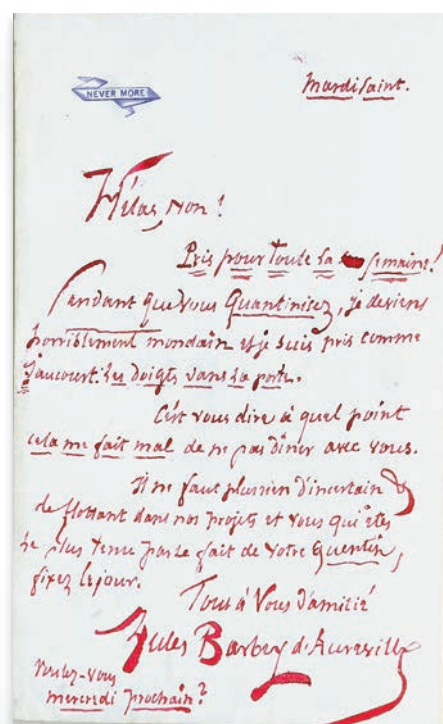 NEVER MORE
Mardi Saint.
Hélas, non !
Pris pour Toute la semaine !
Pendant que vous Quantinisez, je deviens
horriblement mondain et je suis pris comme
Jaucourt. Les doigts dans la porte.
C'est vous dire à quel point
cela me fait mal de ne pas dîner avec vous.
Il ne faut plus rien d'incertain &
de flottant dans nos projets et vous qui êtes
le plus tenu par le fait de votre Quentin,
fixez le jour.
Tout à Vous d'amitié
Jules Barbey d'Aurevilly
Voulez-vous
mercredi prochain ?